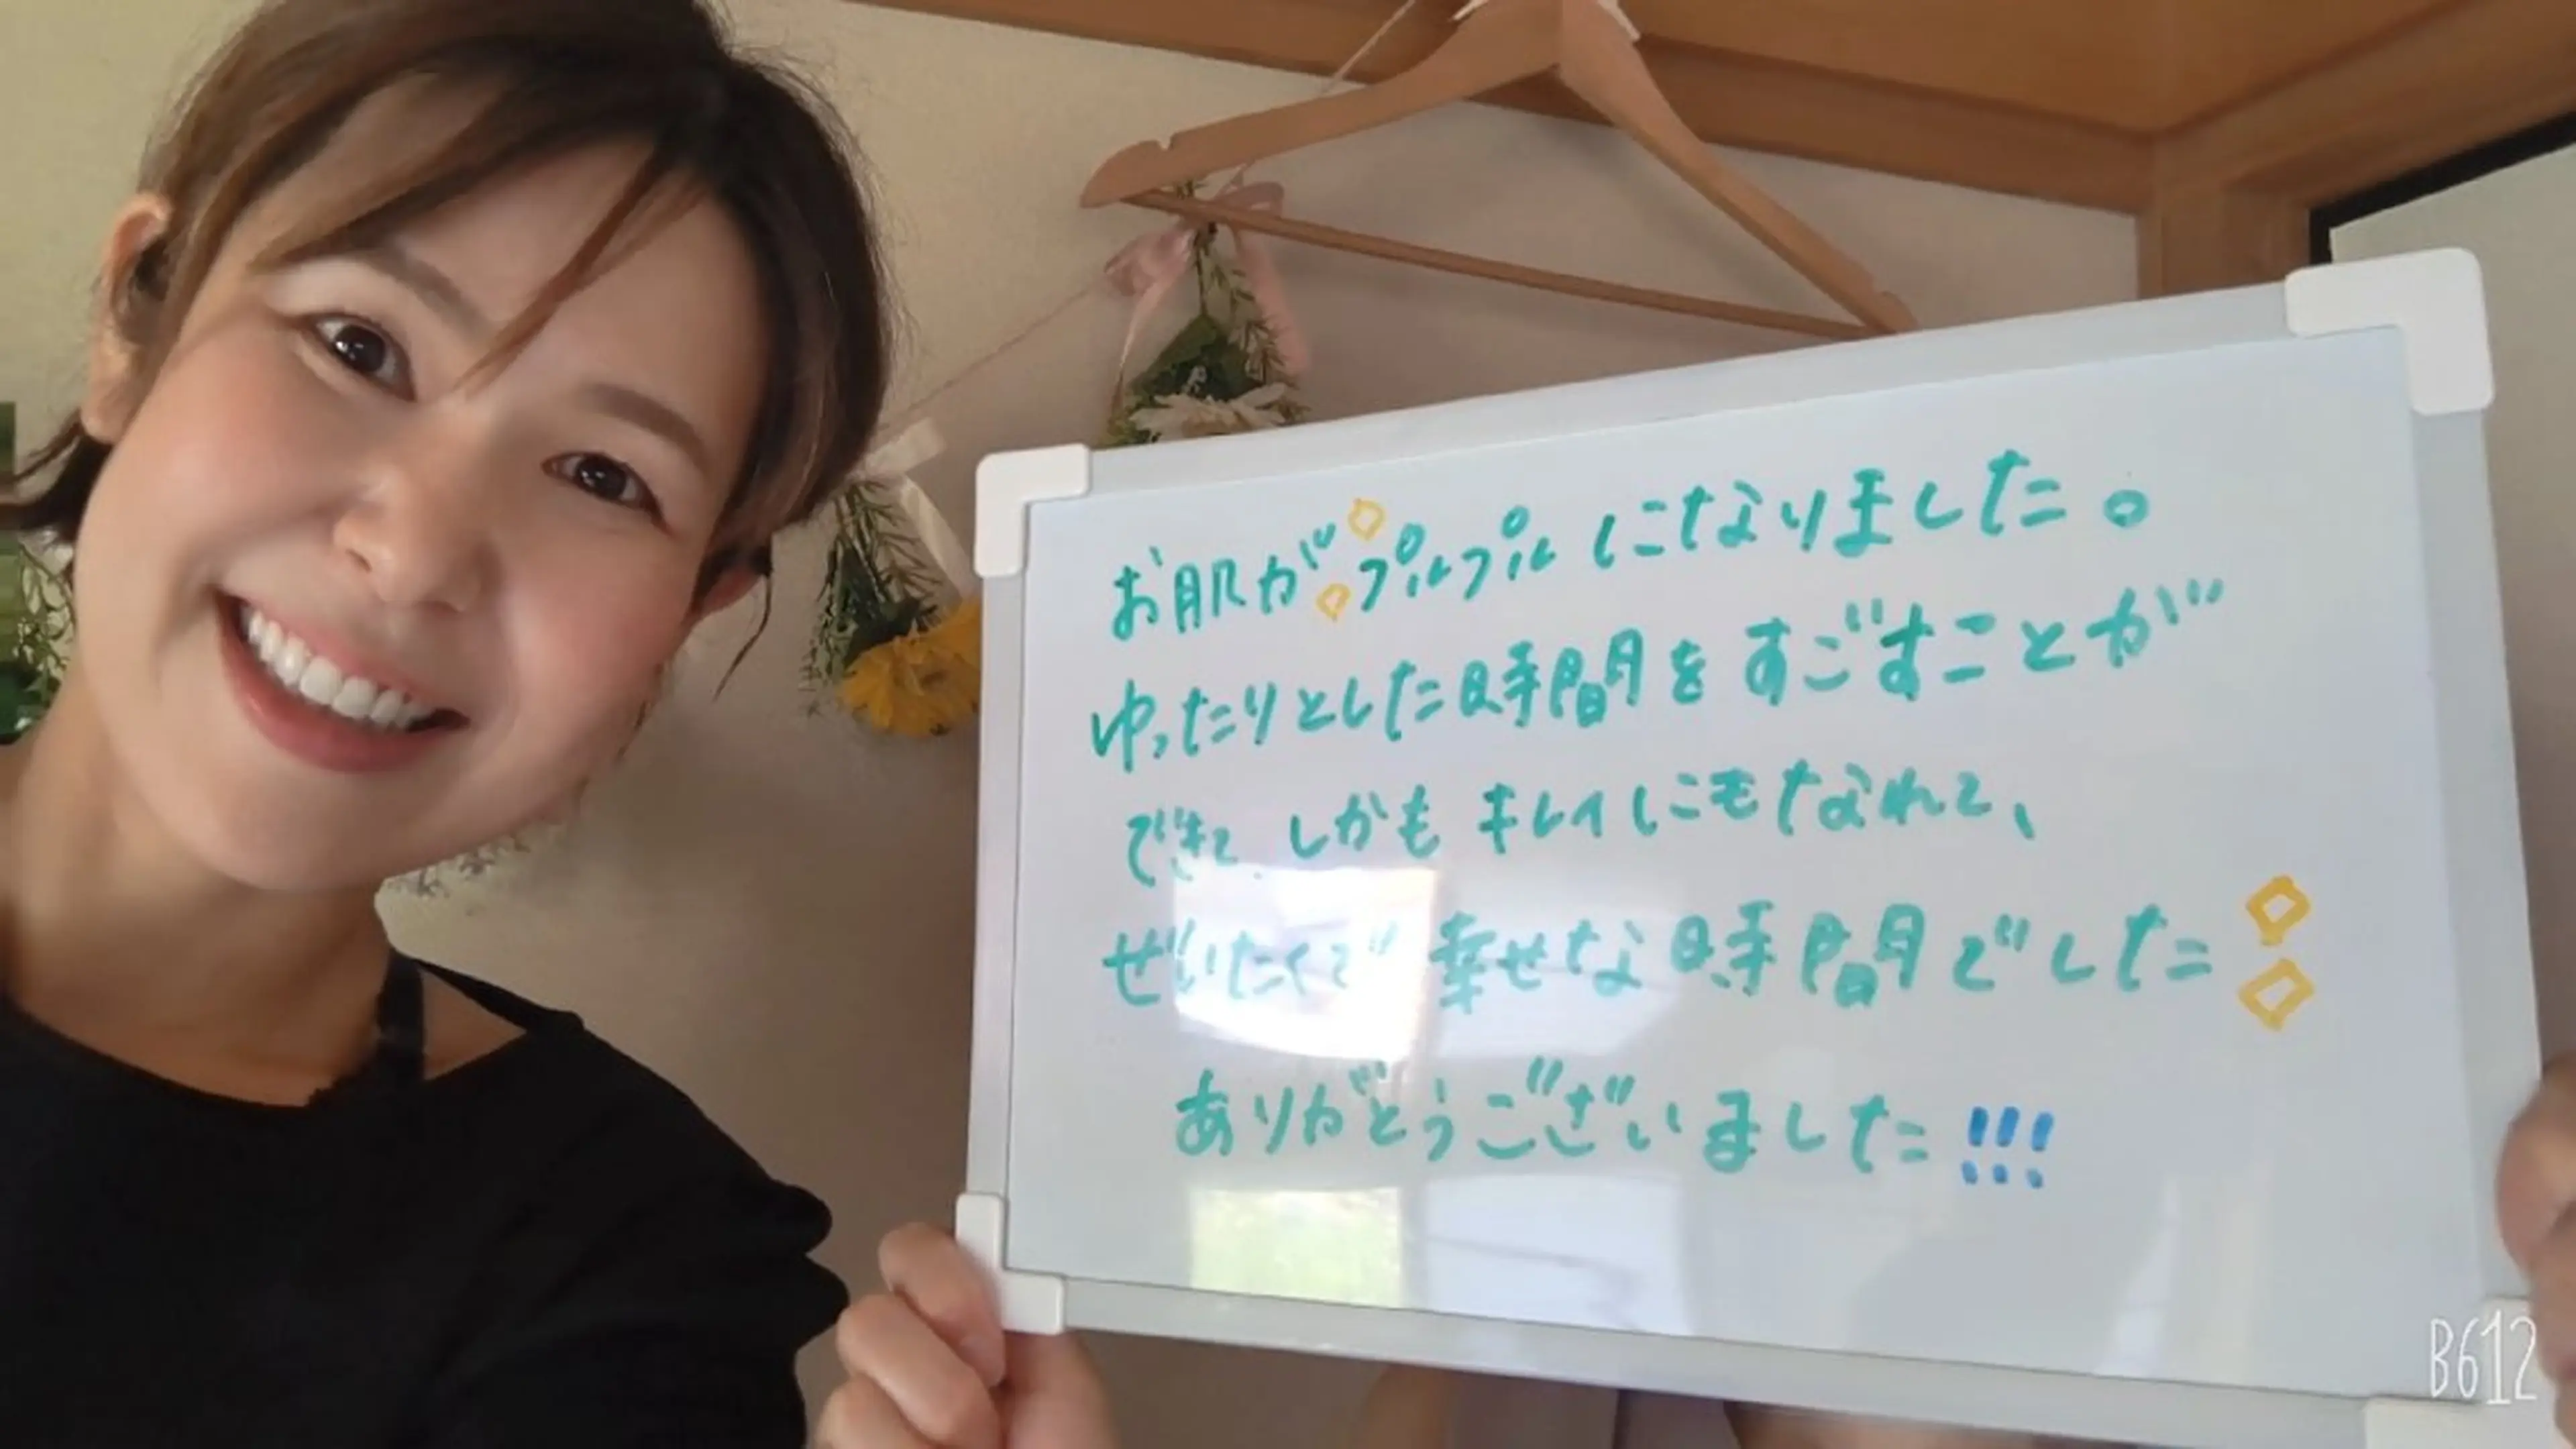 お肌がプルプルになりました。
ゆったりとした時間をすごすことが
できて、しかもキレイにもなれて、
ぜいたくで幸せな時間でした
ありがとうございました!!!
B612